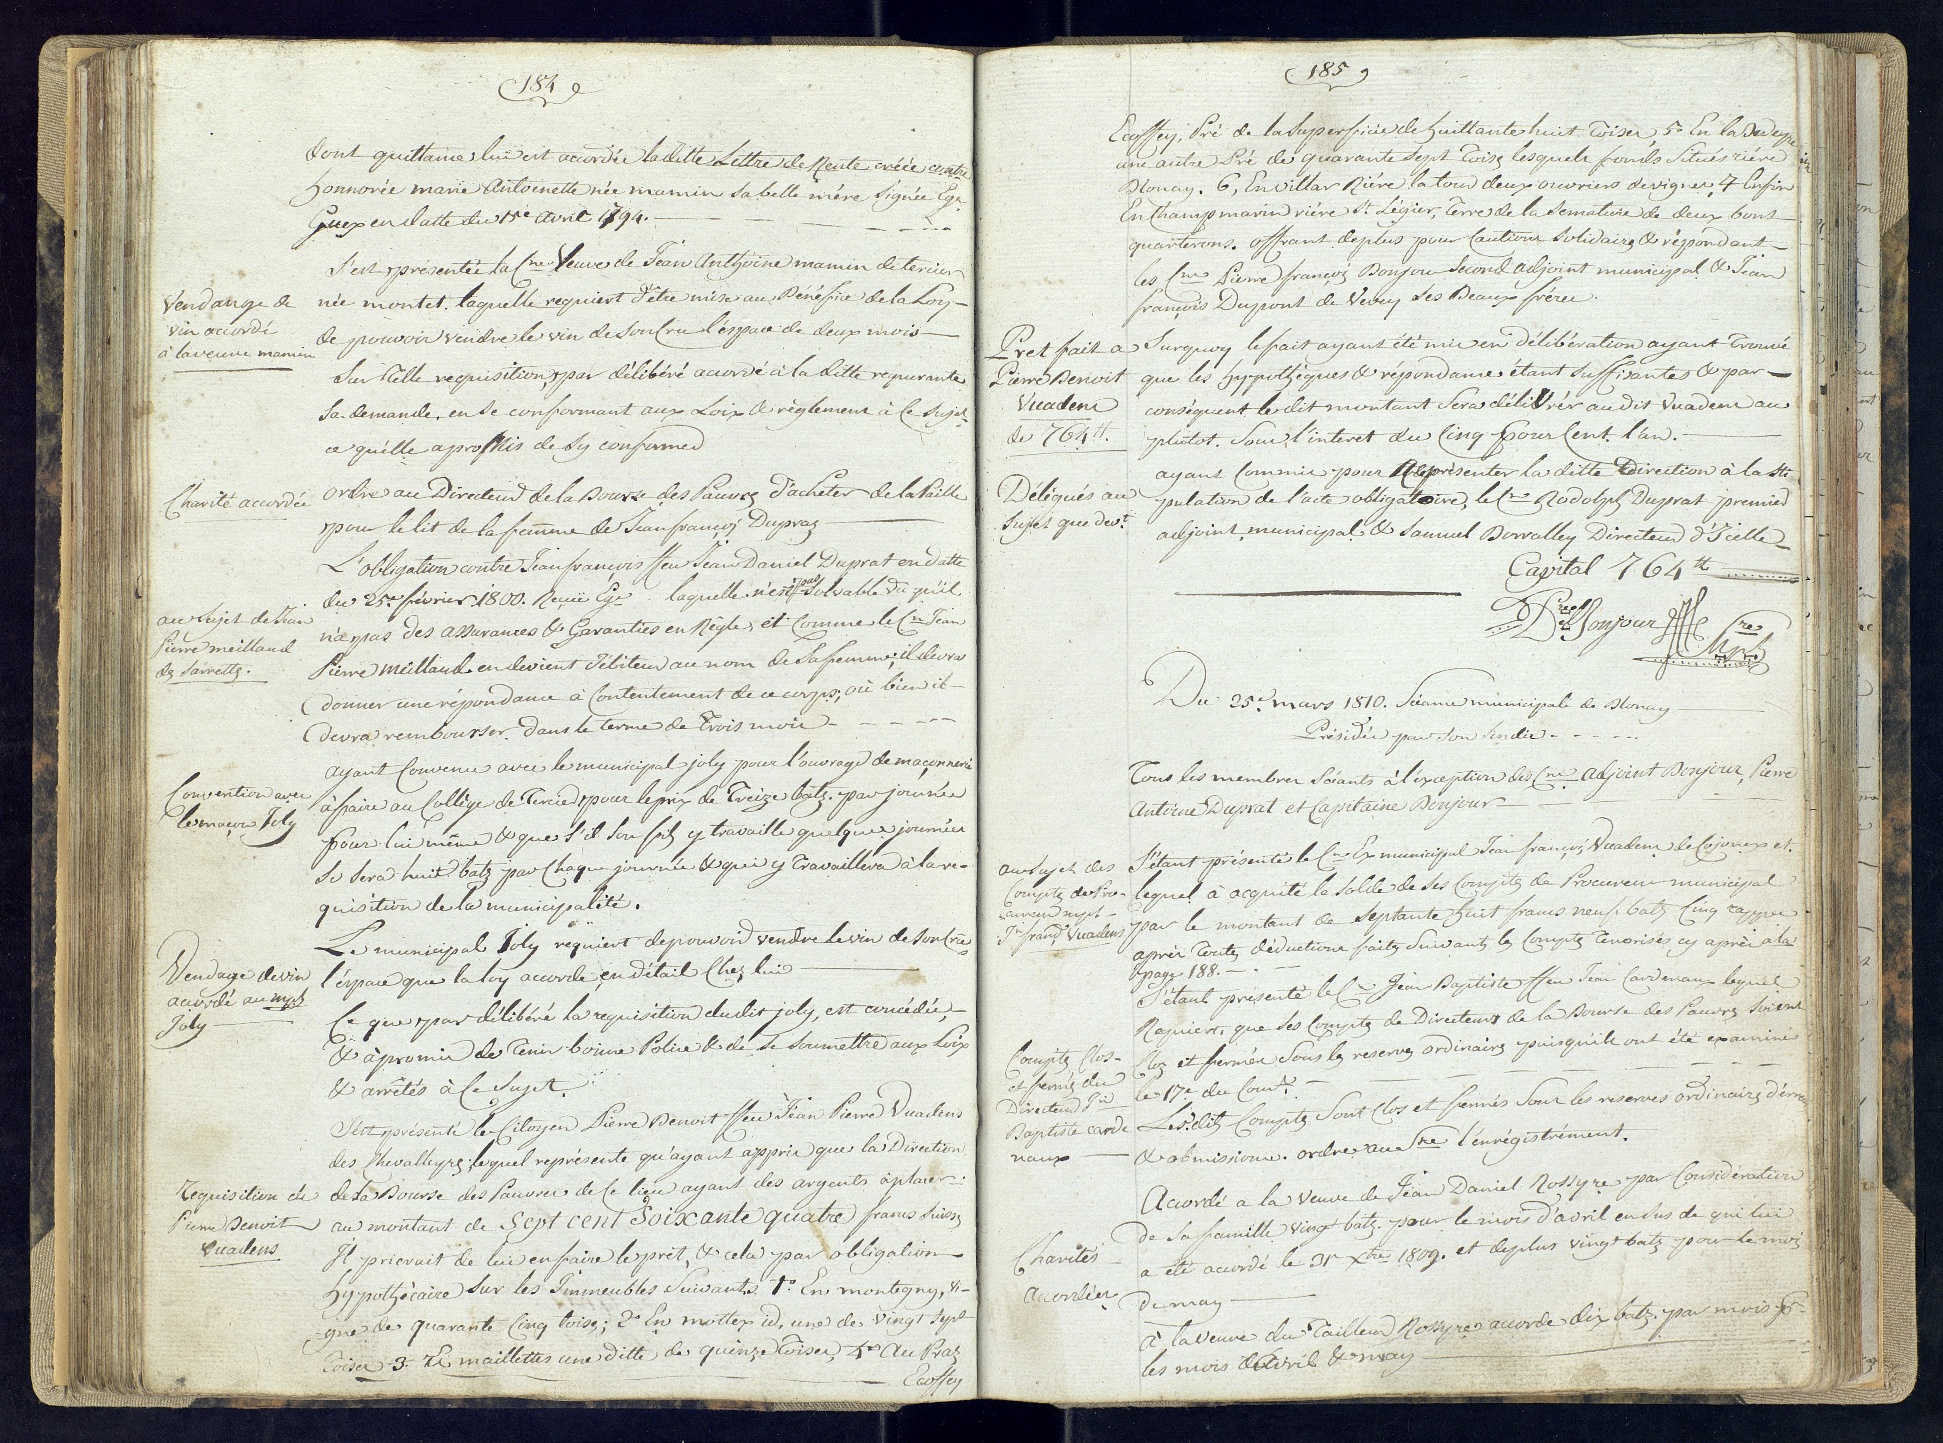 184
dont quittance lui est accordée laditte Lettre de Rente créée contre
honnorée marie Antoinette née mamin sa belle mére signée Ege
Guex en datte du 15e avril 1794.
S'est présentée la Cne Veuve de Jean Anthoine mamin de tercier
Vendange de
vin accordé
à la veuve mamin
née montet. laquelle requiert d'être mise au Bénéfice de la Loy
de pouvoir vendre le vin de son Cru l'éspace de deux mois
Sur telle requisition, par délibéré accordé à la ditte requrante
sa demande, en se conformant aux Loix & règlement à ce sujet
ce qu'elle a promis de s'y conformer
Charité accordée
ordre au Directeur de la Bourse des Pauvres d'acheter de la Paille
pour le lit de la femme de Jean françois Dupraz
L'obligation contre Jean françois ffeu Jean Daniel Duprat en datte
du 25e février 1800. Reçue Ege laquelle n'est pas solvable vu qu'il
au sujet de Jean
Pierre meillaud
des sarrettes.
n'a pas des assurances & Garanties en Règle, et Comme le Cn Jean
Pierre meillaud en devient Débiteur au nom de sa femme, il devra
donner une répondance à Contentement de ce corps; où bien il
devra rembourser dans le terme de trois mois
ayant Convenu avec le municipal joly pour l'ouvrage de maçonnerie
Convention avec
le maçon Joly
à faire au Collège de Tercier, pour le prix de Treize batz. par journée
pour lui même & que s'il son fils y travaille quelques journées
se sera huit batz par Chaque journée & qui y travaillera à la re-
quisition de la municipalité.
Le municipal Joly requiert de pouvoir vendre le vin de son Crû
Vendage de vin
acordé au mpl
Joly
l'éspace que la loy accorde, en détail Chez lui
Ce que par délibéré la requisition dudit joly, est concédée,
& à promis de tenir bonne Police & de se soumettre aux Loix
& arrêtés à Ce sujet.
S'est présenté le Citoyen Pierre Benoit ffeu Jean Pierre Vuadens
des Chevalleyres, lequel représente qu'ayant appris que la Direction
Requisition de
Pierre Benoit
Vuadens
de la Bourse des Pauvres de Ce lieu ayant des argents à placer
au montant de Sept cent Soixante quatre francs suisses
Il prierait de lui en faire le prêt, & cela par obligation
hypothécaire sur les Immeubles suivants. 1o En montegny, vi-
gne de quarante Cinq toises; 2o En mottex id, une de vingt sept
toises 3. Es maillettes une ditte de quinze toises, 4o Au Praz
Ecoffey
185
Ecoffey, Pré de la superficie de huittante huit toises, 5o En la
une autre Pré de quarante sept toises lesquels fonds situés riére
Blonay. 6, En villar Riére la tour deux ouvriers de vignes, 7 Enfin
En Champ marin riére St. Légier, Terre de la semature de deux bons
quarterons. offrant deplus pour Cautions solidaires & répondant
les Cns Pierre françois Bonjour second adjoint municipal & Jean
françois Dupont de Vevey ses Beaux fréres.
Pret fait a
Pierre Benoit
Vuadens
de 764 ₶.
Surquoy le fait ayant été mis en délibération ayant trouvé
que les hypothèques & répondances étant suffisantes & par
conséquent le dit montant sera délivrér au dit Vuadens au
plutot. sous l'interet du Cinq pour Cent. l'an.
Déligués au
sujet que devt.
ayant Commis pour Représenter la ditte Direction à la sti
pulation de l'acte obligatoire, le Cn Rodolph Duprat premier
adjoint, municipal & Samuel Borralley Directeur d'Icelle
Capital 764 ₶
Bonjour
Du 25e mars 1810. Séance municipale de Blonay
Présidée par son sindic
Tous les membres séants à l'exception des Cns adjoint Bonjour, Pierre
Antoine Duprat et Capitaine Bonjour
au sujet des
Comptes de Pro-
cureur mpl
Jn franç Vuadens
S'étant présenté le Cn Ex municipal Jean françois Vuadens de Cojonex et.
lequel à acquité la solde de ses Comptes de Procureur municipal
par le montant de septante huit francs neuf batz Cinq rappes
aprés toutes déductions faites suivants les Comptes Tenorisés cy aprés à la
page 188.
S'étant présenté le Cn Jean Baptiste ffeu Jean Cardenaux lequel
Requiert, que ses Comptes de Directeurs de la Bourse des Pauvres soient
Comptes Clos
et fermés du
Directeur Jn
Baptiste carde
naux
Clos et fermés sous les reserves ordinaires puisqu'ils ont été examinés
le 17e du Cour.t
Lesdits Comptes sont Clos et fermés sous les reserves ordinaires d'érreur
& obmissions. ordre au Sre l'enrégistrément.
Charités
accordées
Acordé a la veuve de Jean Daniel Rossyre par Considération
de sa famille vingt batz. pour le mois d'avril en sus de qui lui
a été acordé le 31 Xbre 1809. et deplus vingt batz pour le mois
de may
à la veuve du Tailleur Rossyre accorde dix batz. par mois pr
les mois d'Avril & may